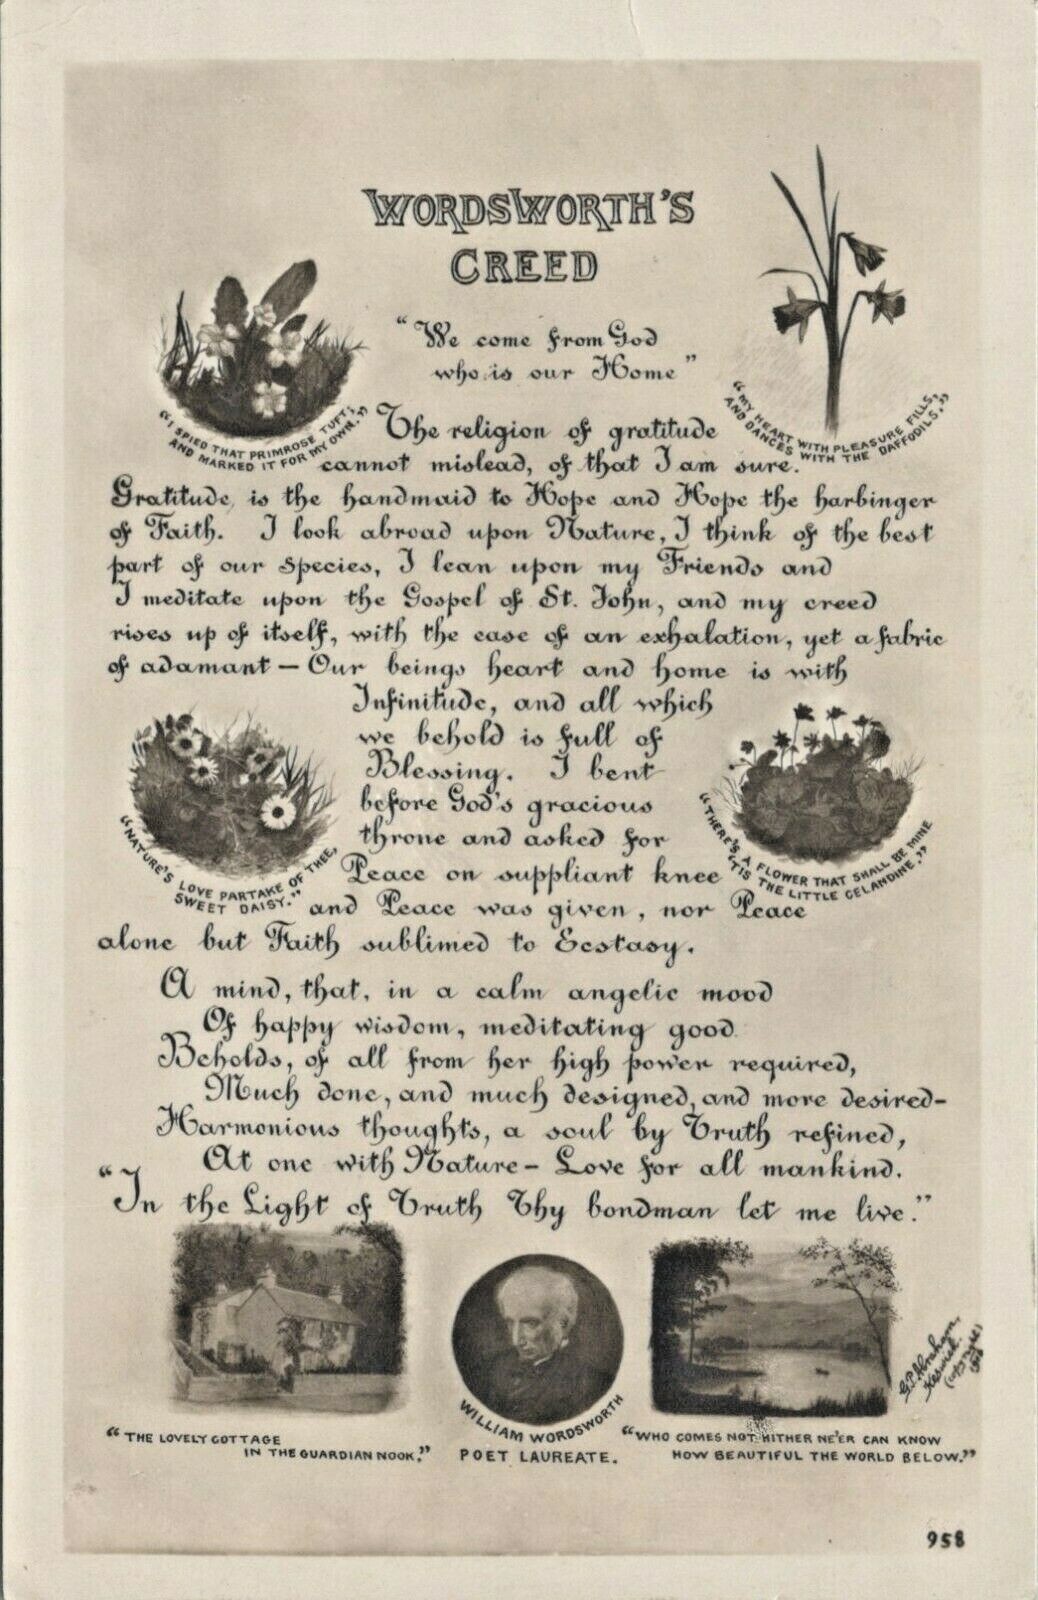 WORDSWORTH'S
CREED
"We come from God
who is our Home"
"I SPIED THAT PRIMROSE TUFT;
AND MARKED IT FOR MY OWN."
"MY HEART WITH PLEASURE FILLS,
AND DANCES WITH THE DAFFODILS."
The religion of gratitude
cannot mislead, of that I am sure.
Gratitude, is the handmaid to Hope and Hope the harbinger
of Faith. I look abroad upon Nature, I think of the best
part of our species, I lean upon my Friends and
I meditate upon the Gospel of St. John, and my creed
rises up of itself, with the ease of an exhalation, yet a fabric
of adamant — Our beings heart and home is with
Infinitude, and all which
we behold is full of
Blessing. I bent
before God's gracious
throne and asked for
Peace on suppliant knee
and Peace was given, nor Peace
alone but Faith sublimed to Ecstasy.
"NATURE'S LOVE PARTAKE OF THEE,
SWEET DAISY."
"THERE'S A FLOWER THAT SHALL BE MINE
'TIS THE LITTLE CELANDINE."
A mind, that, in a calm angelic mood
Of happy wisdom, meditating good
Beholds, of all from her high power required,
Much done, and much designed, and more desired-
Harmonious thoughts, a soul by Truth refined,
At one with Nature - Love for all mankind.
"In the Light of Truth Thy bondman let me live."
"THE LOVELY COTTAGE
IN THE GUARDIAN NOOK."
WILLIAM WORDSWORTH
POET LAUREATE.
"WHO COMES NOT HITHER NE'ER CAN KNOW
HOW BEAUTIFUL THE WORLD BELOW."
G.P. Abraham,
Keswick.
958